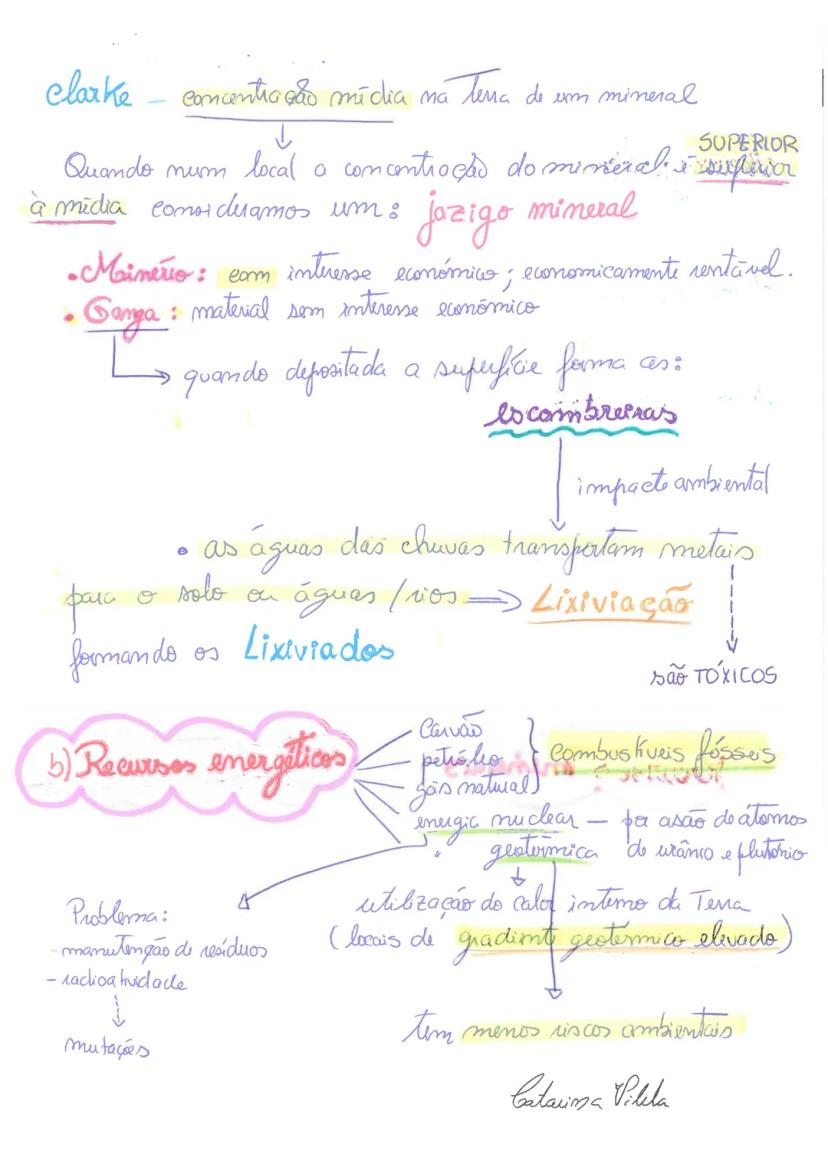 clarke – concentração média na Terra de um mineral
SUPERIOR
Quando num local a concentração do mineral é superior
à média consideramos um: jazigo mineral
• Minério: com interesse económico; economicamente rentável.
• Ganga: material sem interesse económico
quando depositada a superfície forma as:
escombreiras
impacte ambiental
• as águas das chuvas transportam metais
para o solo ou águas/rios ⇒ Lixiviação
formando os Lixiviados
são TÓXICOS
Carvão
b) Recursos energéticos petróleo } combustíveis fósseis
gás natural
energia nuclear – por asão de átomos
" geotérmica de urânio e plutónio
utilização do calor interno da Terra
Problema:
(locais de gradiente geotérmico elevado)
- manutenção de resíduos
- radioatividade
tem menos riscos ambientais
mutações
Catarina Pilela